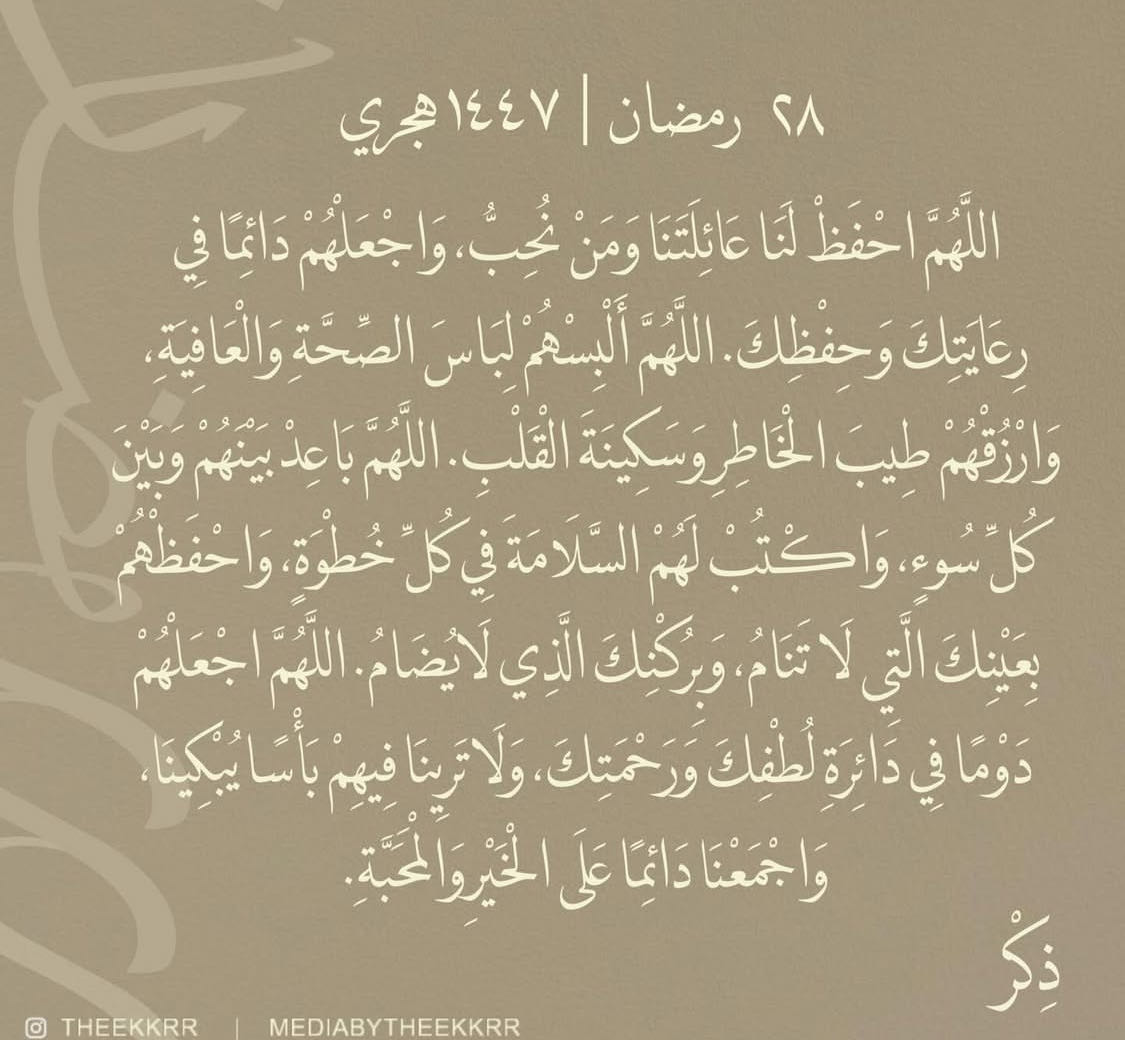 ٢٨ رمضان | ١٤٤٧ هجري
اللَّهُمَّ احْفَظْ لَنَا عَائِلَتَنَا وَمَنْ نُحِبُّ، وَاجْعَلْهُمْ دَائِمًا فِي
رِعَايَتِكَ وَحِفْظِكَ. اللَّهُمَّ أَلْبِسْهُمْ لِبَاسَ الصِّحَّةِ وَالْعَافِيَةِ،
وَارْزُقْهُمْ طِيبَ الْخَاطِرِ وَسَكِينَةَ الْقَلْبِ. اللَّهُمَّ بَاعِدْ بَيْنَهُمْ وَبَيْنَ
كُلِّ سُوءٍ، وَاكْتُبْ لَهُمْ السَّلَامَةَ فِي كُلِّ خُطْوَةٍ، وَاحْفَظْهُمْ
بِعَيْنِكَ الَّتِي لَا تَنَامُ، وَبِرُكْنِكَ الَّذِي لَا يُضَامُ. اللَّهُمَّ اجْعَلْهُمْ
دَوْمًا فِي دَائِرَةِ لُطْفِكَ وَرَحْمَتِكَ، وَلَا تَرِينَا فِيهِمْ بَأْسًا يُبْكِينَا،
وَاجْمَعْنَا دَائِمًا عَلَى الْخَيْرِ وَالْمَحَبَّةِ.
ذِكْر
THEEKKRR | MEDIABYTHEEKKRR